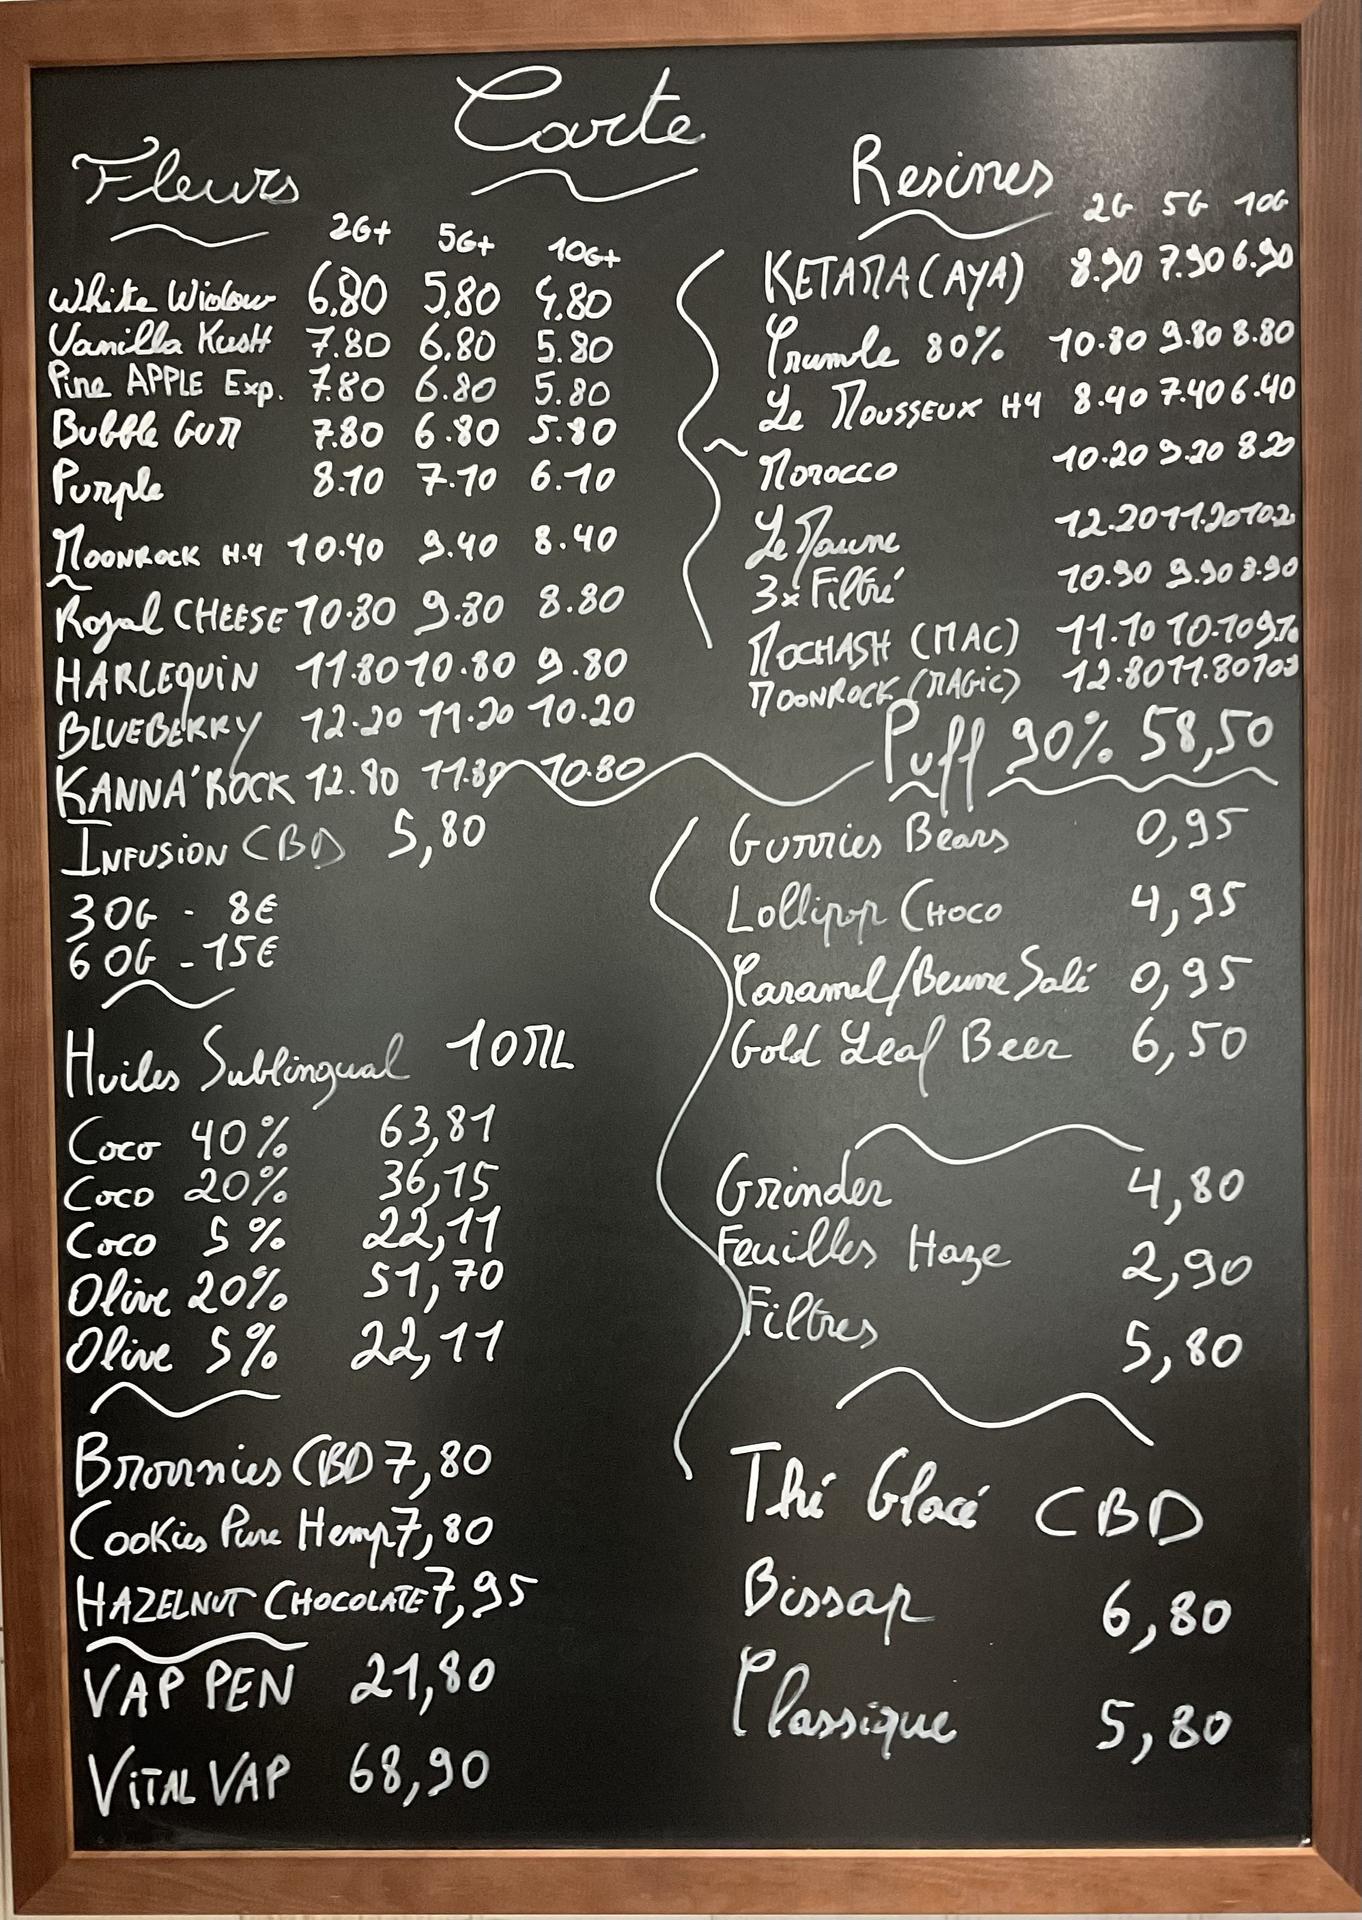 Carte
Fleurs
2G+ 5G+ 10G+
White Widow 6,80 5,80 4,80
Vanilla KusH 7.80 6,80 5.80
Pine APPLE Exp. 7.80 6.80 5.80
Bubble GUM 7.80 6.80 5.80
Purple 8.10 7.10 6.10
MOONROCK H.4 10.40 9.40 8.40
Royal CHEESE 10.80 9.80 8.80
HARLEQUIN 11.80 10.80 9.80
BLUEBERRY 12.20 11.20 10.20
KANNA'ROCK 12.80 11.80 10.80
INFUSION CBD 5,80
30G - 8€
60G - 15€
Huiles Sublingual 10ML
Coco 40% 63,81
Coco 20% 36,15
Coco 5% 22,11
Olive 20% 51,70
Olive 5% 22,11
Brownies CBD 7,80
Cookies Pure Hemp 7,80
HAZELNUT CHOCOLATE 7,95
VAP PEN 21,80
ViTAL VAP 68,90
Resines
2G 5G 10G
KETAMA (AYA) 8.90 7.90 6.90
Crumble 80% 10.80 9.80 8.80
Le MOUSSEUX H4 8.40 7.40 6.40
Morocco 10.20 9.20 8.20
Le Jaune 12.20 11.20 10.20
3x Filtré 10.90 9.90 8.90
MOCHASH (MAC) 11.10 10.10 9.10
MOONROCK (MAGiC) 12.80 11.80
Puff 90% 58,50
Gummies Bears 0,95
Lollipop CHOCO 4,95
Caramel/Beurre Salé 0,95
Gold Leaf Beer 6,50
Grinder 4,80
Feuilles Haze 2,90
Filtres 5,80
Thé Glacé CBD
Bissap 6,80
Classique 5,80